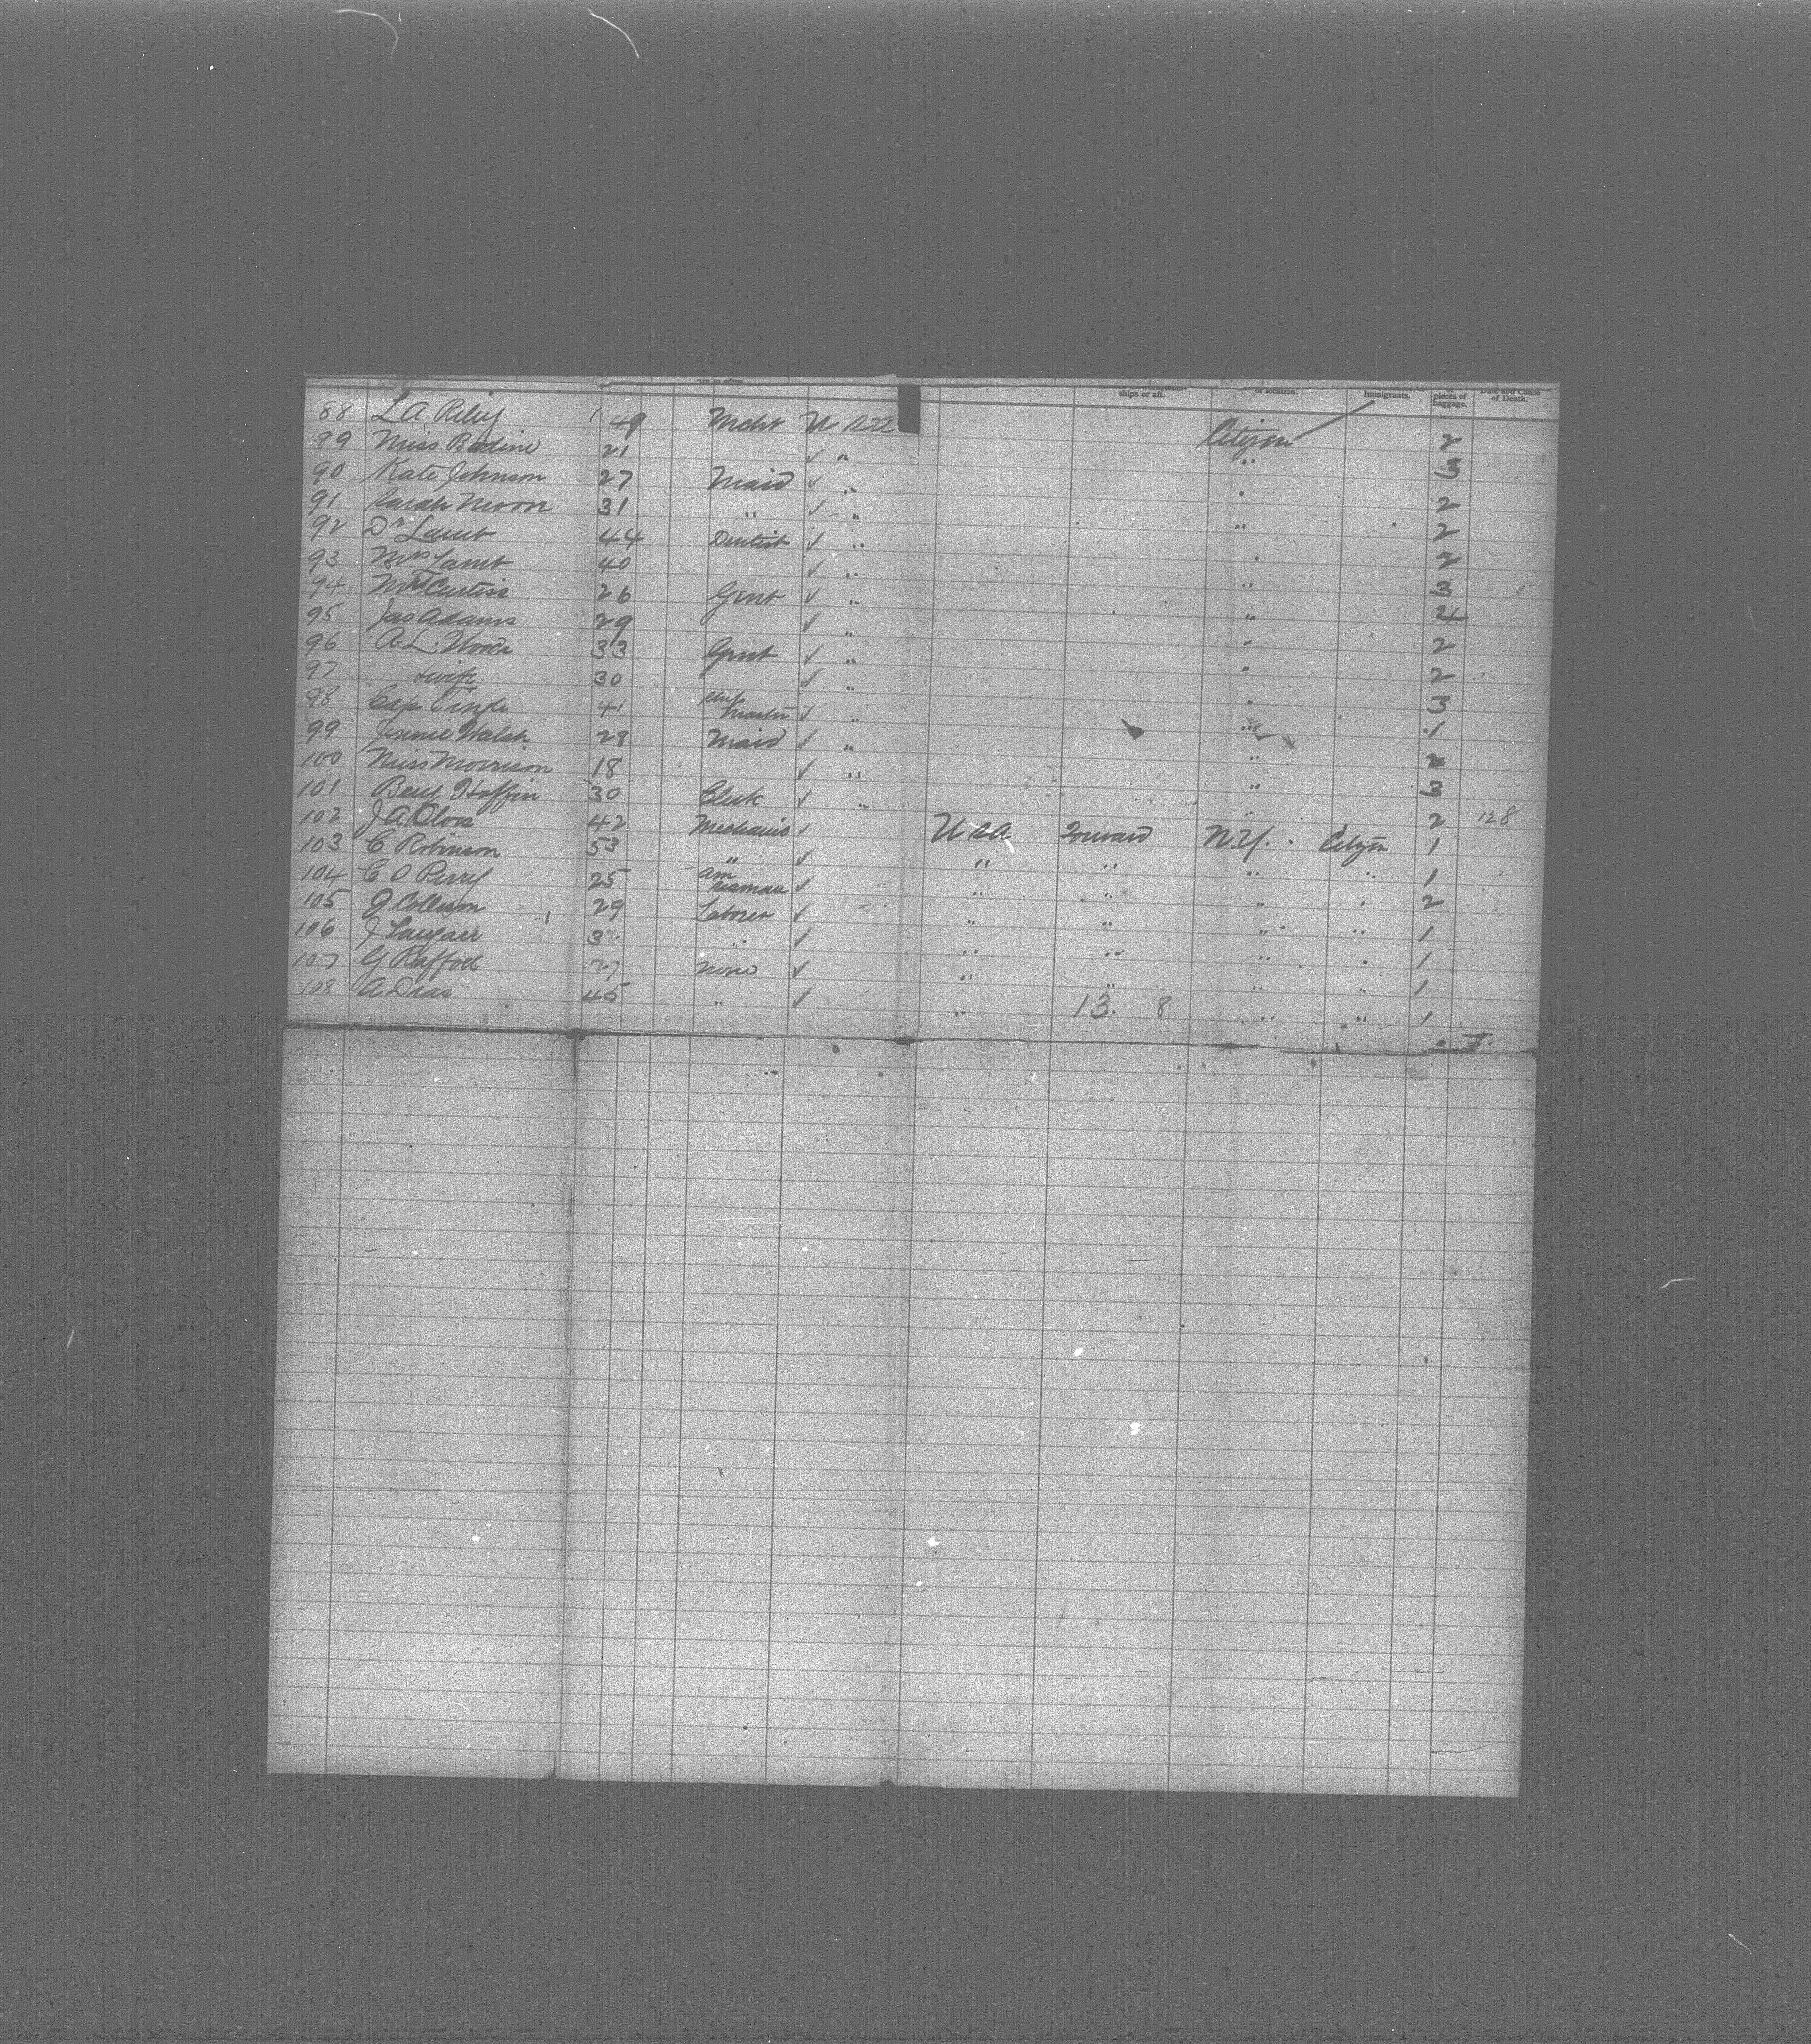 ships or aft. of location. Immigrants. pieces of baggage. Date and Cause of Death.
88 L A Riley 49 Mcht U S A Citizen 2
99 Miss Bodine 21 ✓ " " 3
90 Kate Johnson 27 Maid ✓ " " 2
91 Sarah Moon 31 " ✓ " " 2
92 Dr Lamb 44 Dentist ✓ " " 2
93 Mrs Lamb 40 ✓ " " 3
94 Curtiss 26 Gent ✓ " " 4
95 Jas Adams 29 ✓ " " 2
96 A. L. 33 Gent ✓ " " 2
97 & wife 30 ✓ " " 3
98 Cap 41 Ship Master ✓ " " 1
99 Jennie Walsh 28 Maid ✓ " " 2
100 Miss Morrison 18 ✓ " " 3
101 Benj 30 Clerk ✓ " " 2 128
102 J A 42 Mechanic ✓ U S A Forward N.Y. Citizen 1
103 C Robinson 53 " ✓ " " " " 1
104 C O Perry 25 am seaman ✓ " " " " 2
105 J Collison 29 Laborer ✓ " " " " 1
106 J " ✓ " " " " 1
107 G 27 none ✓ " " " " 1
108 A Dias 45 " ✓ " 13. 8 " " 1